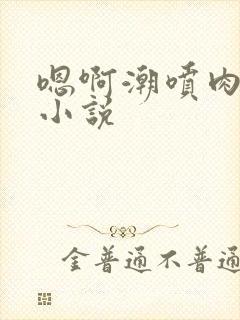 嗯啊潮喷肉
小说
金普通不普通